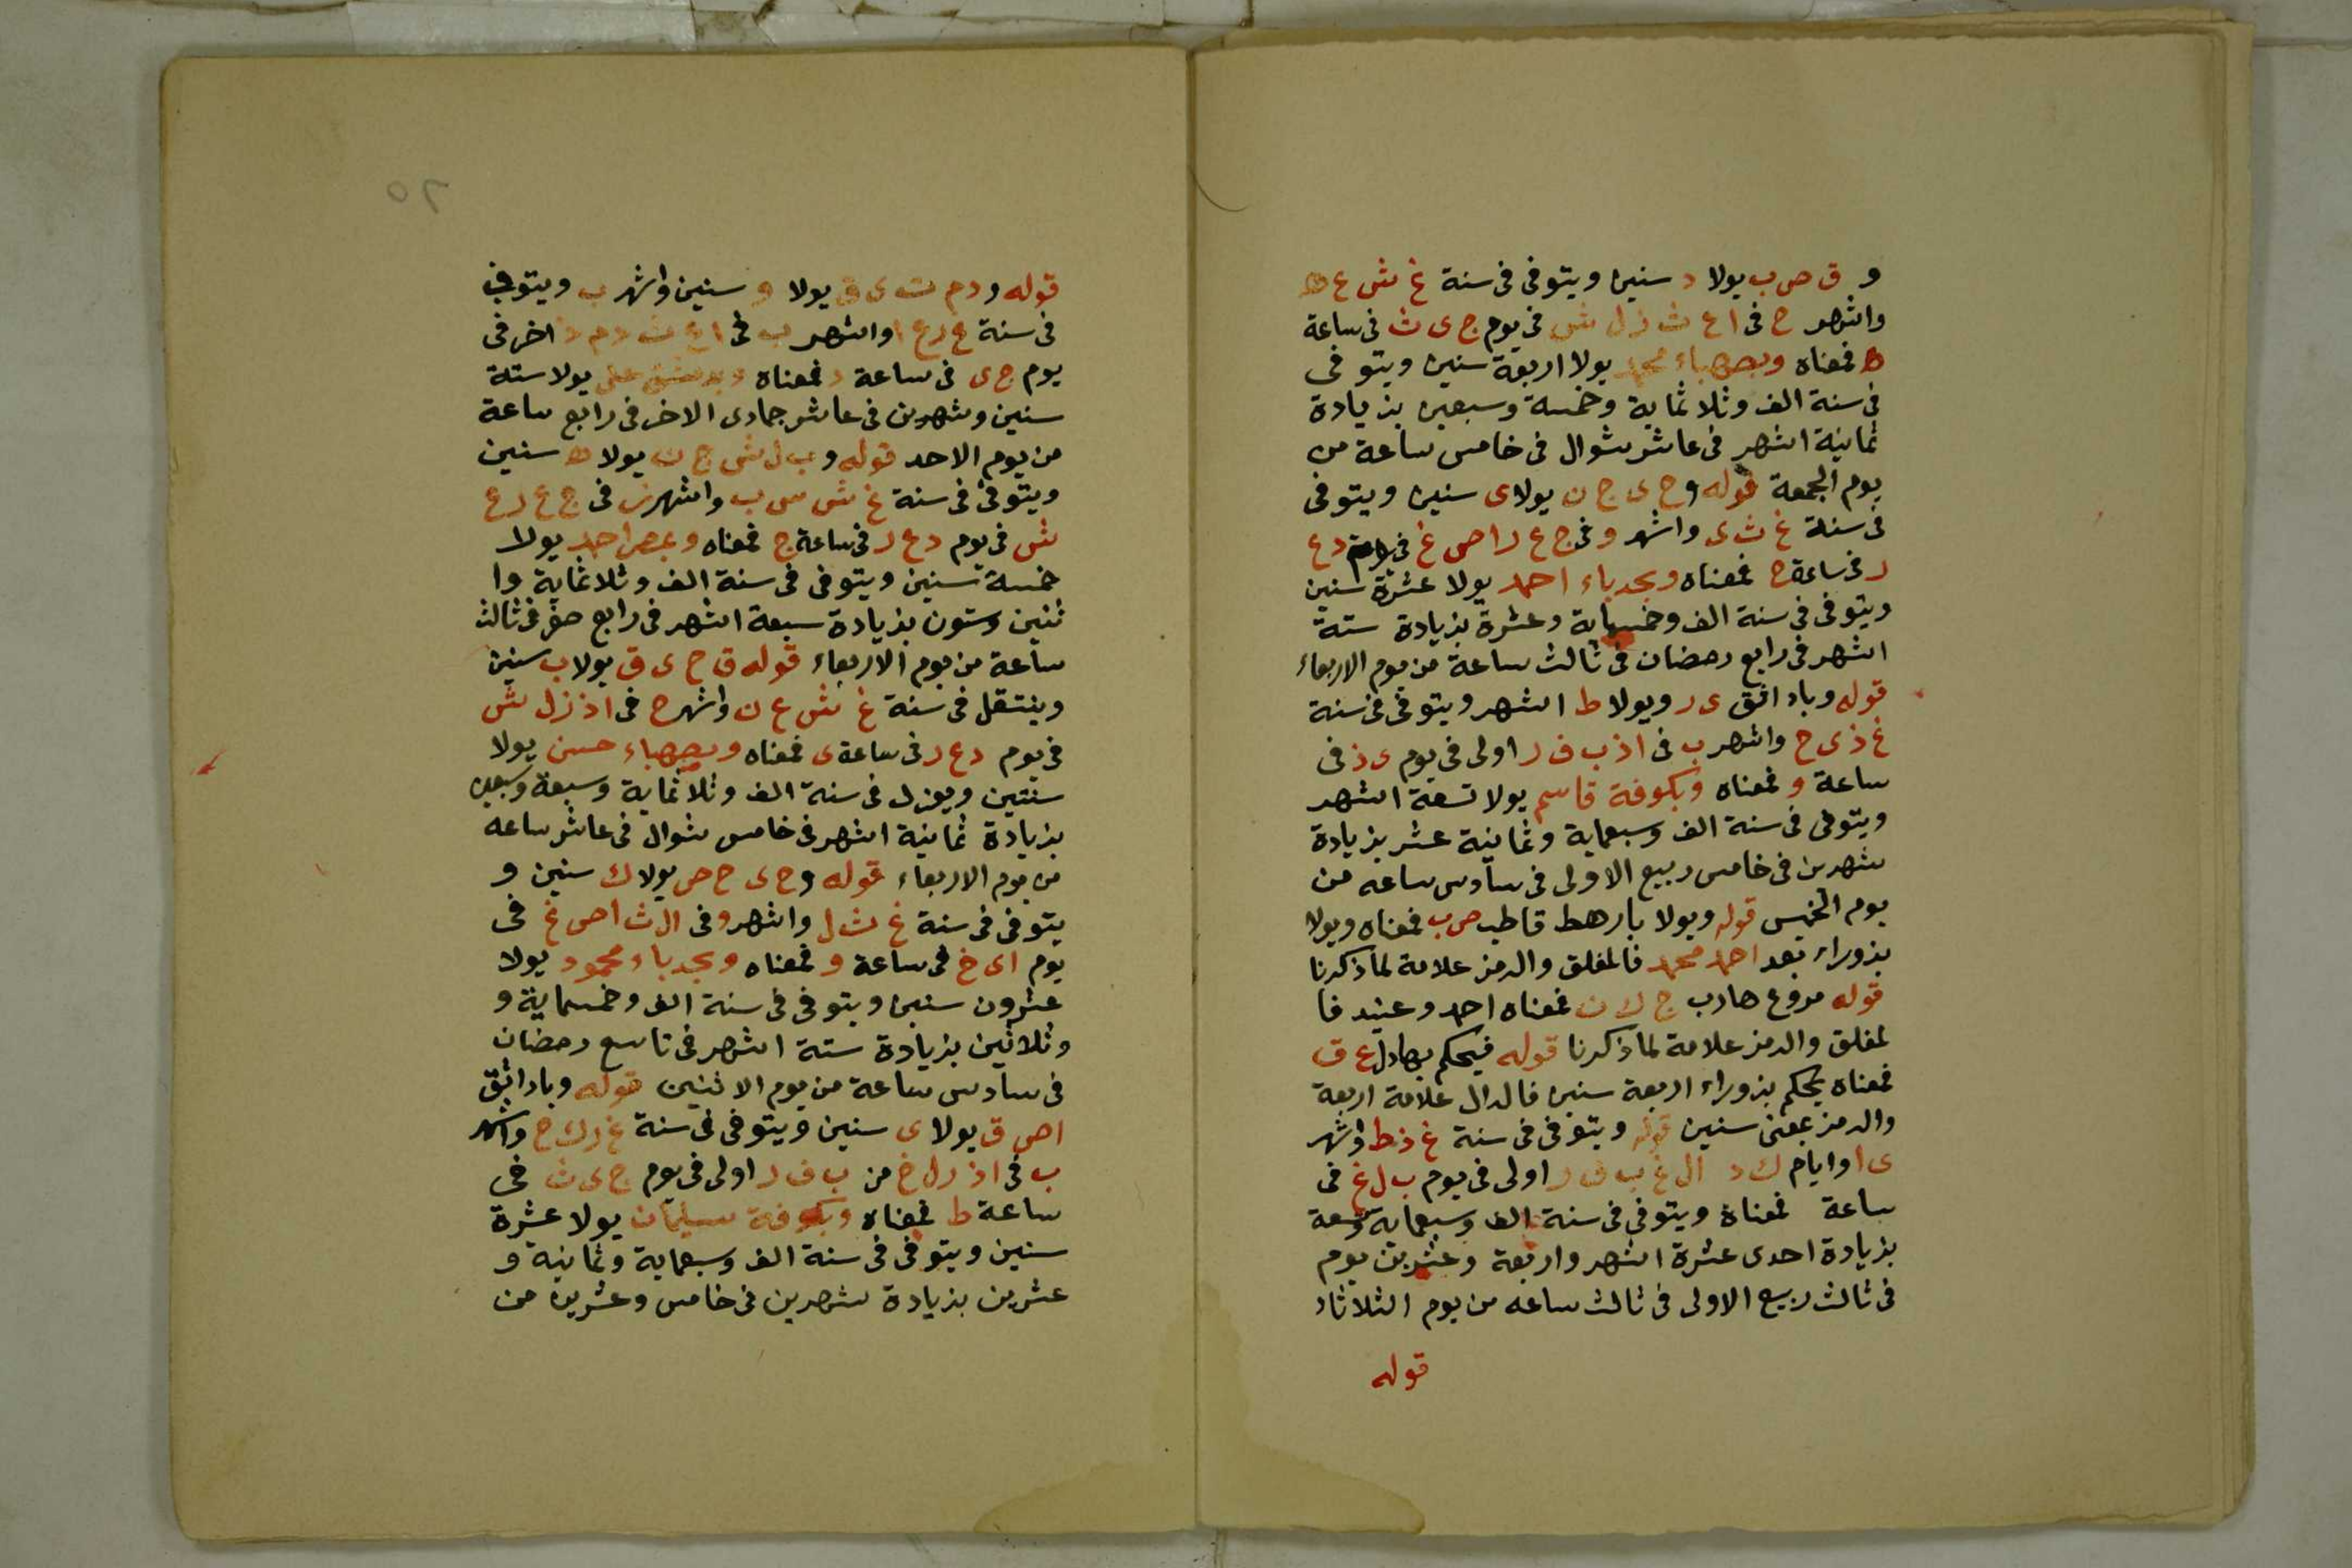 و ق ص ب يولا د سنين ويتوفى فى سنة غ ش ع ه
واشهر ح فى ا ع ث ز ل ش فى يوم ج ى ث فى ساعة
ه فمعناه وبصهباء محمد يولا اربعة سنين ويتوفى
فى سنة الف وثلاثماية وخمسة وسبعين بزيادة
ثمانية اشهر فى عاشر شوال فى خامس ساعة من
يوم الجمعة قوله و ح ى ج ن يولا ى سنين ويتوفى
فى سنة غ ث ى واشهر و فى ج ع ر ا ص غ فى د ع
ر فى ساعة ج فمعناه وبحدباء احمد يولا عشرة سنين
ويتوفى فى سنة الف وخمسماية وعشرة بزيادة ستة
اشهر فى رابع رمضان فى ثالث ساعة من يوم الاربعاء
قوله وباد اثق ى ر ويولا ط اشهر ويتوفى فى سنة
غ ذ ى ح واشهر ب فى ا ذ ب ف ر اولى فى يوم ى ذ فى
ساعة و فمعناه وبكوفة قاسم يولا تسعة اشهر
ويتوفى فى سنة الف وسبعماية وثمانية عشر بزيادة
شهرين فى خامس ربيع الاولى فى سادس ساعه من
يوم الخميس قوله ويولا بارهط قاطب ص ب فمعناه ويولا
بزوراء بعد احمد محمد فالمغلق والرمز علامة لما ذكرنا
قوله مروع هارب ج ك ن فمعناه احمد وعنيد فا
لمغلق والرمز علامة لما ذكرنا قوله فيحكم بهادل ع ق
فمعناه يحكم بزوراء اربعة سنين فالدال علامة اربعة
والرمز بمعنى سنين قوله ويتوفى فى سنة غ ذ ط واشهر
ى ا وايام ك د ال غ ب ف ر اولى فى يوم ب ل غ فى
ساعة فمعناه ويتوفى فى سنة الف وسبعماية وتسعة
بزيادة احدى عشرة اشهر واربعة وعشرين يوم
فى ثالث ربيع الاولى فى ثالث ساعه من يوم الثلاثاء
قوله
٦٥
قوله و د م ت ى ق يولا و سنين واشهر ب ويتوفى
فى سنة غ ر ع ا واشهر ب فى ا ع ث د م د اخر فى
يوم ج ى فى ساعة د فمعناه وبدمشق على يولا ستة
سنين وشهرين فى عاشر جمادى الاخر فى رابع ساعة
من يوم الاحد قوله و ب ل ش ج ن يولا ه سنين
ويتوفى فى سنة غ ش س ب واشهر ز فى ج ع ر ع
ش فى يوم د ع ر فى ساعة ج فمعناه وبمصر احمد يولا
خمسة سنين ويتوفى فى سنة الف وثلاثماية وا
ثنين وستون بزيادة سبعة اشهر فى رابع صفر فى ثالث
ساعة من يوم الاربعاء قوله ق ح ى ق يولا ب سنين
وينتقل فى سنة غ ش ع ن واشهر ح فى ا ذ ز ل ش
فى يوم د ع ر فى ساعة ى فمعناه وبصهباء حسن يولا
سنتين ويعزل فى سنة الف وثلاثماية وسبعة وسبعين
بزيادة ثمانية اشهر فى خامس شوال فى عاشر ساعه
من يوم الاربعاء قوله و ح ى ح ص يولا ك سنين و
يتوفى فى سنة غ ث ل واشهر و فى ال ث ا ص غ فى
يوم ا ى خ فى ساعة و فمعناه وبحدباء محمود يولا
عشرون سنين ويتوفى فى سنة الف وخمسماية و
وثلاثين بزيادة ستة اشهر فى تاسع رمضان
فى سادس ساعة من يوم الاثنين قوله وباد اثق
ا ص ق يولا ى سنين ويتوفى فى سنة غ ذ ك ح واشهر
ب فى ا ذ ر ل خ من ب ف ر اولى فى يوم ج ى ث فى
ساعة ط فمعناه وبكوفة سليمان يولا عشرة
سنين ويتوفى فى سنة الف وسبعماية وثمانية و
عشرين بزيادة شهرين فى خامس وعشرين من